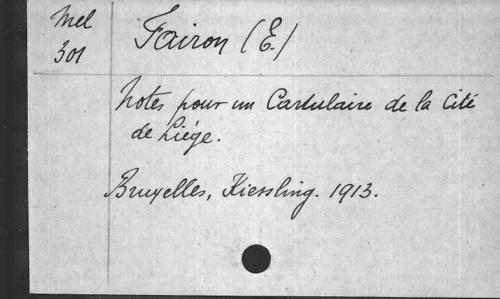 Mel
301
Fairon (E.)
Notes pour un Cartulaire de la Cité
de Liége.
Bruxelles, Kiessling. 1913.